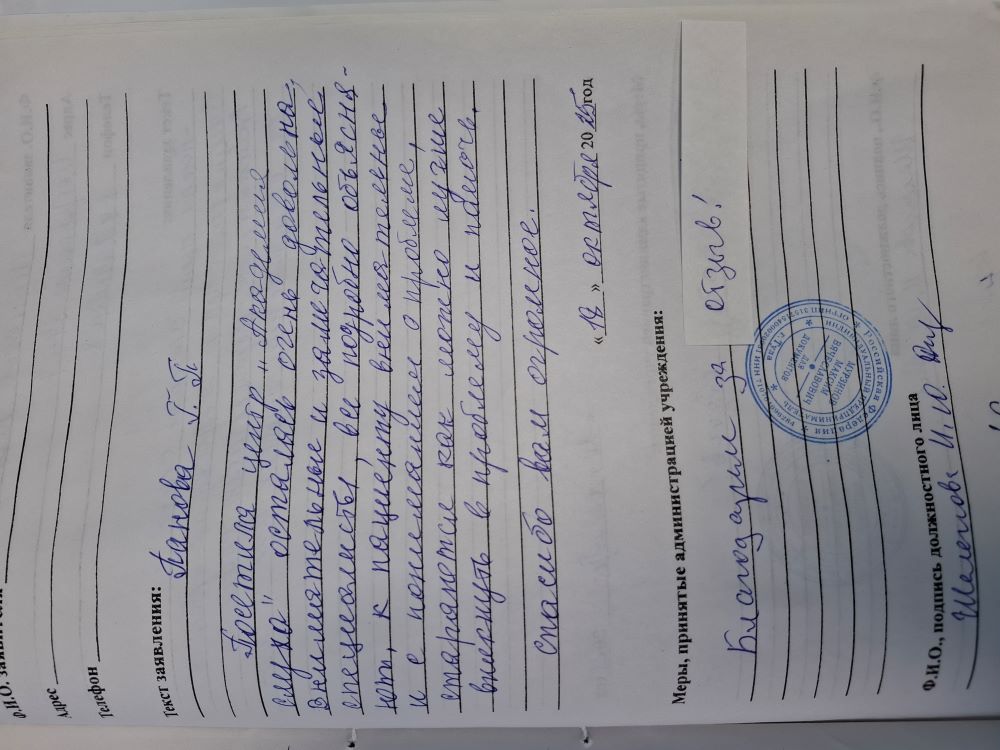 Ф.И.О. заявителя
Адрес
Телефон
Текст заявления:
Панова Т. П.
Посетила центр „Академия
слуха" осталась очень довольна,
внимательные и замечательные
специалисты, все подробно объясня-
ют, к пациенту внимательные
и с пониманием о проблеме,
стараются как можно лучше
вникнуть в проблему и помочь.
спасибо вам огромное.
«18» октября 2025год
Меры, принятые администрацией учреждения:
Благодарим за отзыв!
Российская Федерация
ИНДИВИДУАЛЬНЫЙ ПРЕДПРИНИМАТЕЛЬ
ВЯЧЕСЛАВОВИЧ
для
документов
Ф.И.О., подпись должностного лица
И.Ю.